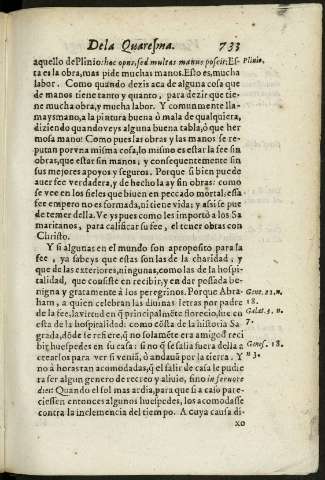 De la Quaresma. 733
aquello de Plinio: hoc opus, sed multas manus poscit: Es- Plinio.
ta es la obra, mas pide muchas manos. Esto es, mucha
labor. Como quando dezis aca de alguna cosa que
de manos tiene tanto y quanto, para dezir que tie-
ne mucha obra, y mucha labor. Y comunmente lla-
mays mano, a la pintura buena ò mala de qualquiera,
diziendo quando veys alguna buena tabla, ò que her
mosa mano! Como pues las obras y las manos se re-
putan por vna misma cosa, lo mismo es estar la fee sin
obras, que estar sin manos; y consequentemente sin
sus mejores apoyos y seguros. Porque si bien puede
auer fee verdadera, y de hecho la ay sin obras: como
se vee en los fieles que biuen en peccado mortal; essa
fee empero no es formada, ni tiene vida; y assi se pue
de temer della. Ve ys pues como les importò a los Sa
maritanos, para calificar su fee, el tener obras con
Christo.
Y si algunas en el mundo son aproposito para la
fee, ya sabeys que estas son las de la charidad, y
que de las exteriores, ningunas, como las de la hospi-
talidad, que consiste en recibir, y en dar possada be-
nigna y gratamente à los peregrinos. Porque Abra- Gene. 22. n.
ham, a quien celebran las diuinas letras por padre 18.
de la fee, la virtud en q̃ principalmẽte florecio, fue en Galat. 3. n.
esta de la hospitalidad: como cõsta de la historia Sa 7.
grada, dõde se refiere, q̃ no solamẽte era amigo d̃ reci
bir huespedes en su casa: si no q̃ se salia fuera della a Genes. 18.
otearlos para ver si veniã, ò andauã por la tierra. Y n 3.
no à horas tan acomodadas, q̃ el salir de casa le pudie
ra ser algun genero de recreo y aliuio, sino in feruore
diei: Quando el sol mas ardia, para que si a caso pare-
ciessen entonces algunos huespedes, los acomodasse
contra la inclemencia del tiempo. A cuya causa di-
xo